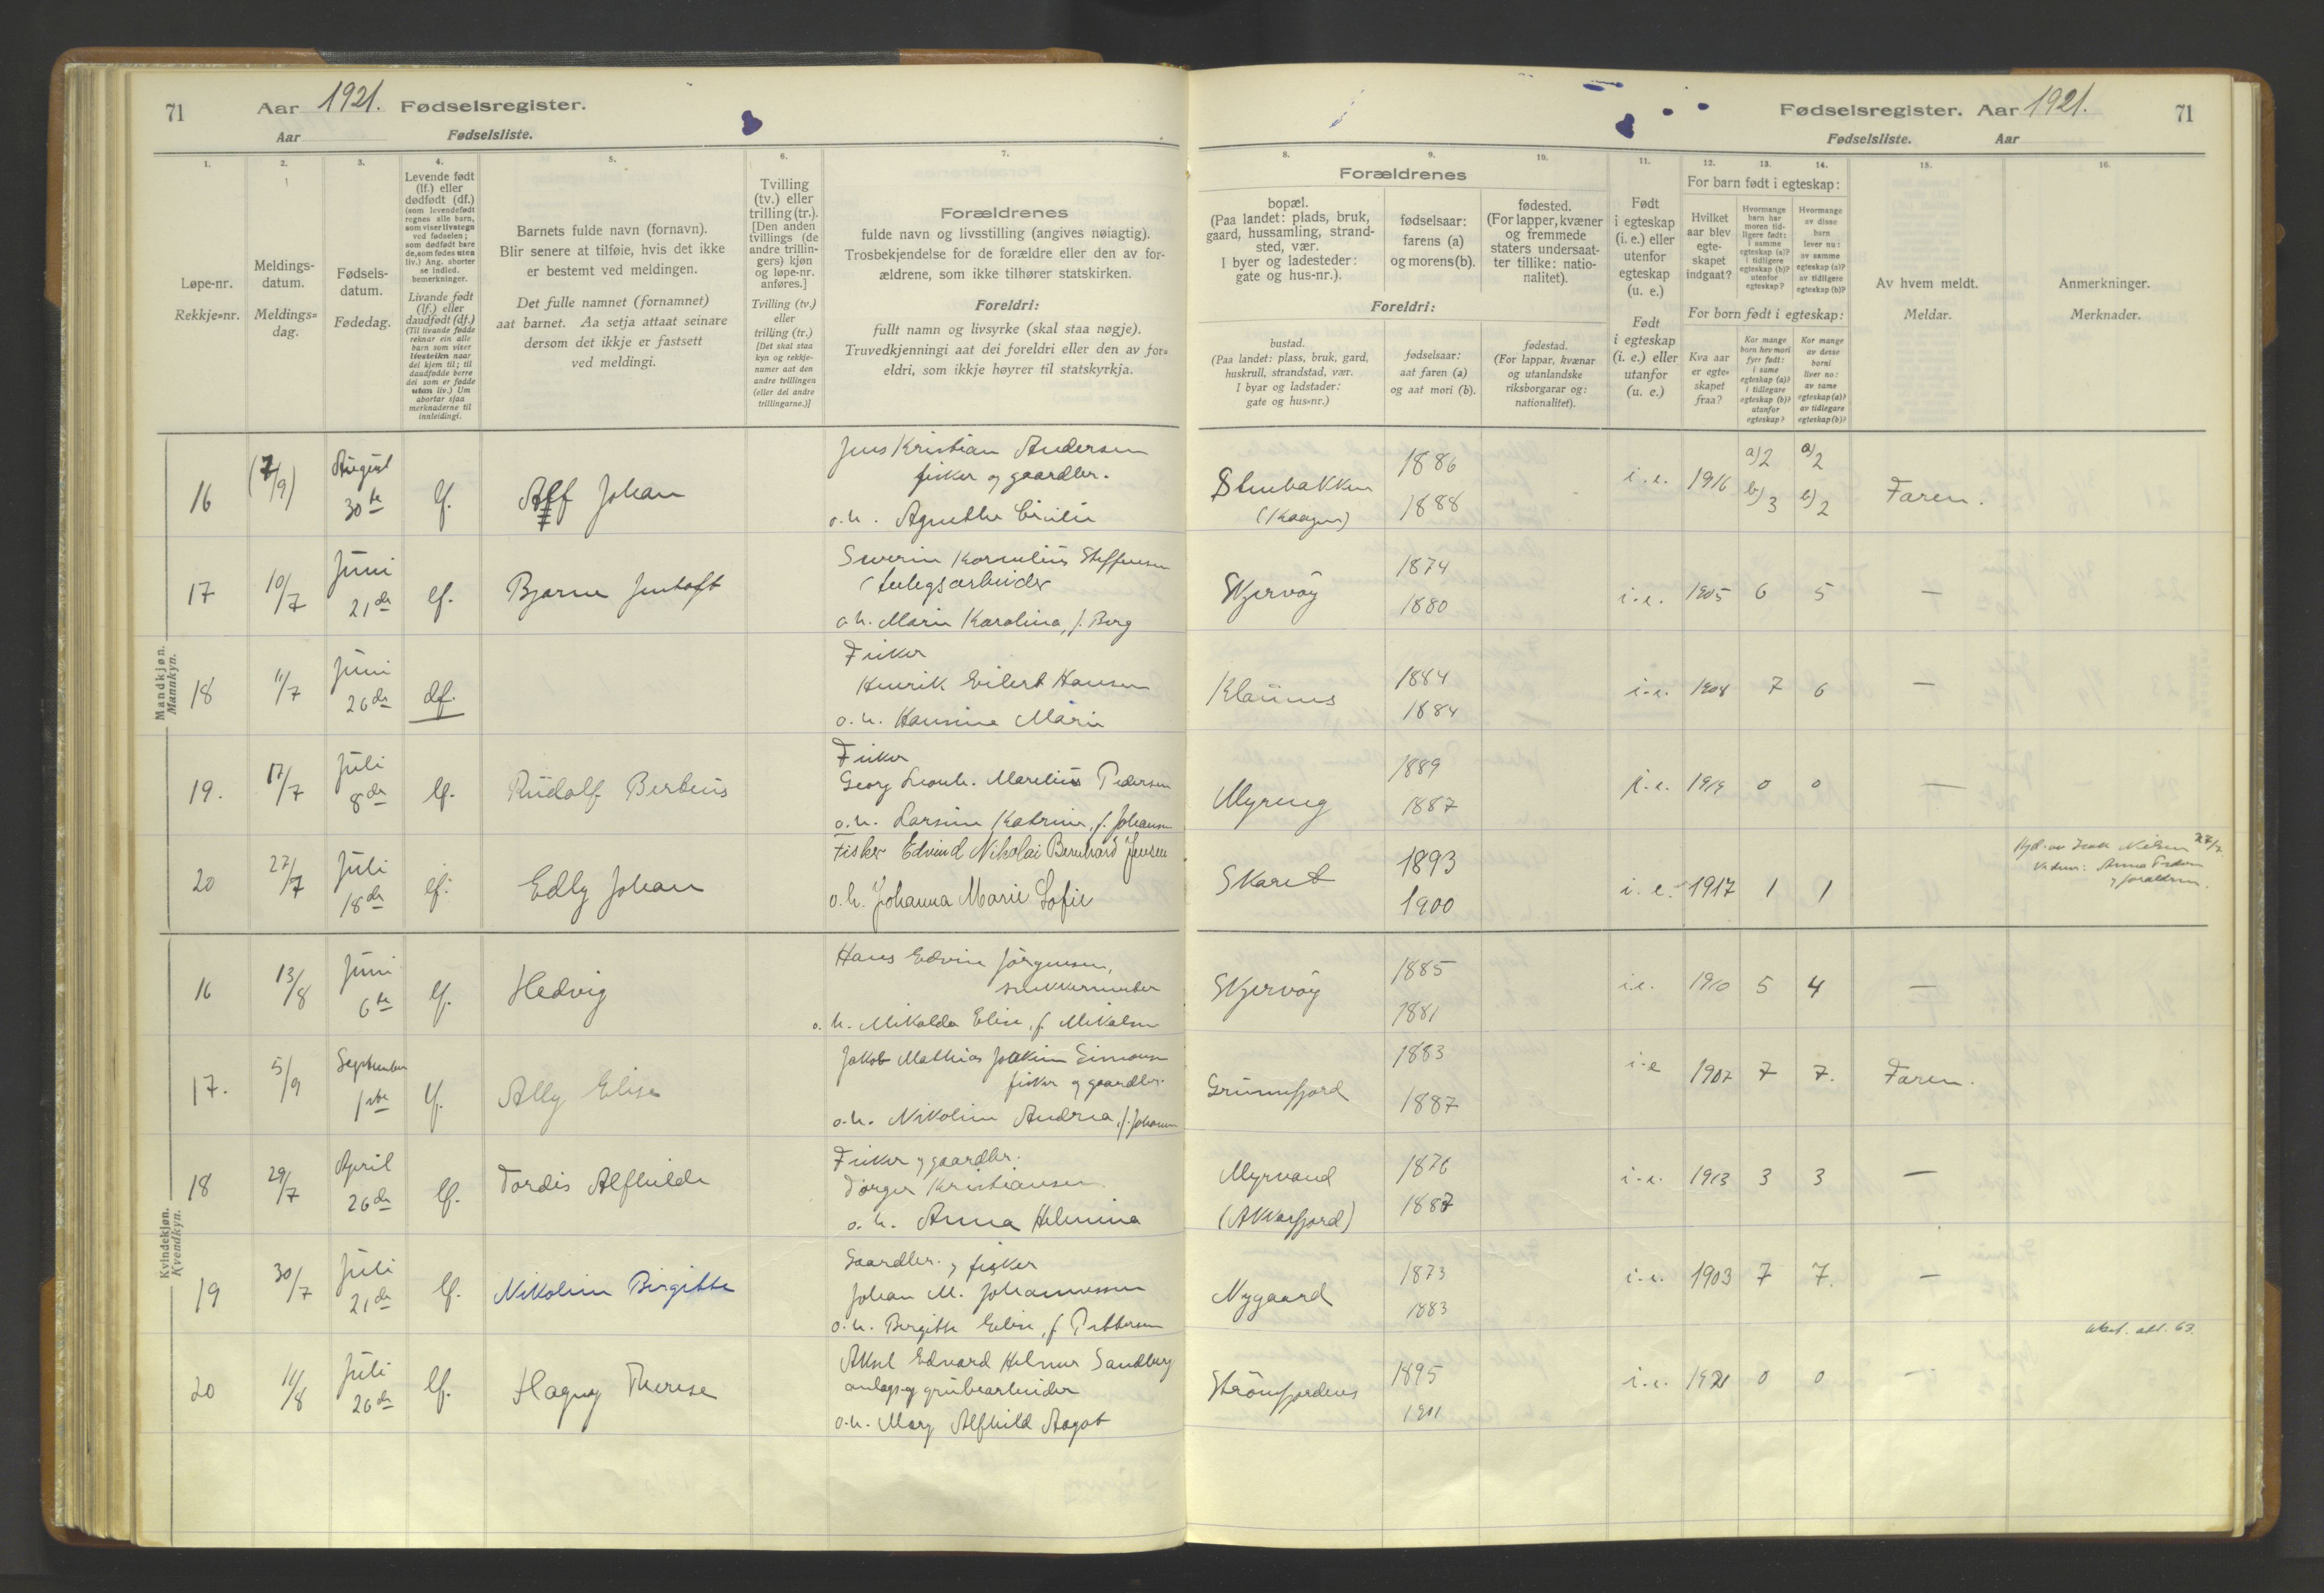 71
Aar 1921. Fødselsregister.
Aar Fødselsliste.
Fødselsregister. Aar 1921.
71
Fødselsliste. Aar
1.
2.
3.
4.
5.
6.
7.
Løpe-nr.
Rekkje=nr.
Meldings-
datum.
Meldings=
dag.
Fødsels-
datum.
Fødedag.
Levende født
(lf.) eller
dødfødt (df.)
(som levendefødt
regnes alle barn,
som viser livstegn
ved fødselen;
som dødfødt bare
de, som fødes uten
liv.) Ang. aborter
se indled.
bemerkninger.
Livande født
(lf.) eller
daudfødt (df.)
(Til livande fødde
reknar ein alle
barn som viser
livsteikn naar
dei kjem til; til
daudfødde berre
dei som er fødde
utan liv.) Um
abortar sjaa
merknaderne til
innleidingi.
Barnets fulde navn (fornavn).
Blir senere at tilføie, hvis det ikke
er bestemt ved meldingen.
Det fulle namnet (fornamnet)
aat barnet. Aa setja attaat seinare
dersom det ikkje er fastsett
ved meldingi.
Tvilling
(tv.) eller
trilling (tr.).
[Den anden
tvillings (de
andre trillin-
gers) kjøn
og løpe-nr.
anføres.]
Tvilling (tv.)
eller
trilling (tr.)
[Det skal staa
kyn og rekkje-
numer aat den
andre tvillingen
(eller dei andre
trillingarne.)]
Forældrenes
fulde navn og livsstilling (angives nøiagtig).
Trosbekjendelse for de forældre eller den av for-
ældrene, som ikke tilhører statskirken.
Foreldri:
fullt namn og livsyrke (skal staa nøgje).
Truvedkjenningi aat dei foreldri eller den av for=
eldri, som ikkje høyrer til statskyrkja.
8.
9.
10.
11.
12.
13.
14.
15.
16.
Forældrenes
bopæl.
(Paa landet: plads, bruk,
gaard, hussamling, strand-
sted, vær.
I byer og ladesteder:
gate og hus-nr.).
fødselsaar:
farens (a)
og morens (b).
fødested.
(For lapper, kvæner
og fremmede
staters undersaat-
ter tillike: natio-
nalitet).
Foreldri:
bustad.
(Paa landet: plass, bruk, gard,
huskrull, strandstad, vær.
I byar og ladstader:
gate og hus=nr.)
fødselsaar:
aat faren (a)
og aat mori (b).
fødestad.
(For lappar, kvænar
og utanlandske
riksborgarar og:
nationalitet).
Født
i egteskap
(i. e.) eller
utenfor
egteskap
(u. e.)
Født
i egteskap
(i. e.) eller
utanfor
(u. e.)
For barn født i egteskap:
Hvilket
aar blev
egte-
skapet
indgaat?
Hvormange
barn har
moren tid-
ligere født:
i samme
egteskap (a)?
i tidligere
egteskap (b)?
utenfor
egteskap?
Hvormange
av disse
barn
lever nu:
av samme
egteskap (a)?
av tidligere
egteskap (b)?
For born født i egteskap:
Kva aar
er egte=
skapet
fraa?
Kor mange
born hev mori
fyrr født:
i same
egteskap (a)?
i tidlegare
egteskap (b)?
utanfor
egteskap?
Kor mange
av desse
borni
liver no:
av same
egteskap (a)?
av tidlegare
egteskap (b)?
Av hvem meldt.
Meldar.
Anmerkninger.
Merknader.
Mandkjøn.
Mannkyn.
16 (7/9) August 30te lf. Alf Johan
Jens Kristian Andersen
fisker og gaardbr.
o. h. Agnethe Cecilie
Stenbakken
(Kaagen)
1886
1888
i. e. 1916 a) 2 b) 3 a) 2 b) 2 Faren.
17 10/7 Juni 21de lf. Bjarne Jentoft
Severin Kornelius Steffensen
o. h. Marie Karolina, f. Berg
Skjervøy
1874
1880
i. e. 1905 6 5 —
18 11/7 Juni 26de df.
Fisker
Henrik Eilert Hansen
o. h. Hansine Marie
1884
1884
i. e. 1908 7 6 —
19. 17/7 Juli 8de lf. Rudolf Berteus
Fisker
Georg Leonh. Marelius Pedersen
o. h. Larsine Katrine, f. Johansen
Myreng
1889
1887
i. e. 1919 0 0 —
20 27/7 Juli 18de lf. Edly Johan
Fisker Edvind Nikolai Bernhard Jensen
o. h. Johanna Marie Sofie
Skaret
1893
1900
i. e. 1917 1 1
27/7
Kvindekjøn.
Kvendkyn.
16 13/8 Juni 6te lf. Hedvig
Hans Edvin Jørgensen,
snekkermester
o. h. Mikalda Elise, f. Mikalsen
Skjervøy
1885
1881
i. e. 1910 5 4 —
17. 5/9 September 1ste lf. Ally Elise
Jakob Mathias Joakim Simonsen
fisker og gaardbr.
o. h. Nikoline Andrea, f. Johansen
Grunnfjord
1883
1887
i. e 1907 7 7. Faren.
18 29/7 April 26de lf. Tordis Alfhilde
Fisker og gaardbr.
Torger Kristiansen
o. h. Anna Helmina
Myrvand
(Akkarfjord)
1876
1887
i. e. 1913 3 3 —
19 30/7 Juli 21de lf. Nikoline Birgitte
Gaardbr. og fisker
Johan M. Johannessen
o. h. Birgitte Eline, f. Pettersen
Nygaard
1873
1883
i. e. 1903 7 7. —
20 11/8 Juli 26de lf. Hagny Therese
Aksel Edvard Helmer Sandberg
anlægs og grubearbeider
o. h. Mary Alfhild Aagot
Strømfjordnes
1895
1901
i. e. 1921 0 0 —
att. 63.